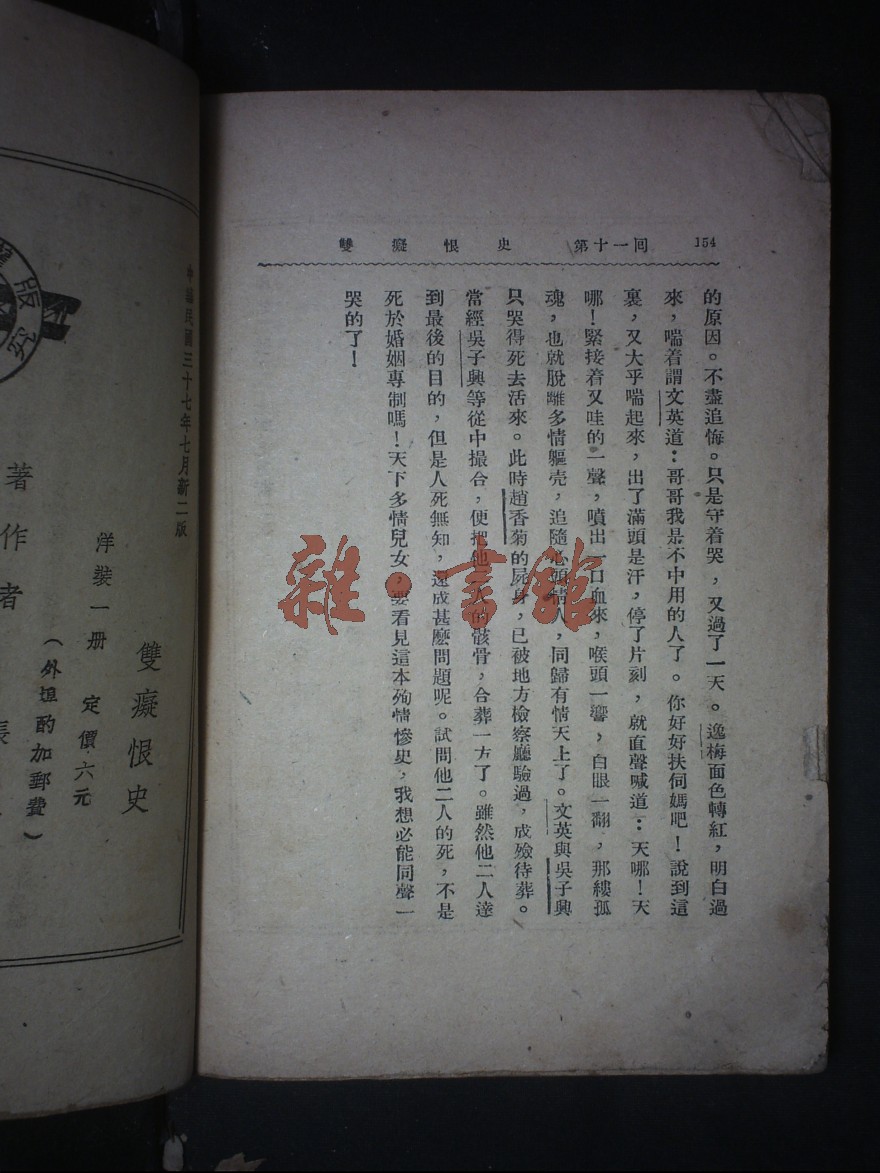 雙癡恨史 第十一回 154
的原因。不盡追悔。只是守着哭，又過了一天。逸梅面色轉紅，明白過
來，喘着謂文英道：哥哥我是不中用的人了。你好好扶伺媽吧！說到這
裏，又大乎喘起來，出了滿頭是汗，停了片刻，就直聲喊道：天哪！天
哪！緊接着又哇的一聲，噴出一口血來，喉頭一響，白眼一翻，那縷孤
魂，也就脫離多情軀壳，追隨心頭情人，同歸有情天上了。文英與吳子興
只哭得死去活來。此時趙香菊的屍身，已被地方檢察廳驗過，成殮待葬。
當經吳子興等從中撮合，便把他二人的骸骨，合葬一方了。雖然他二人達
到最後的目的，但是人死無知，還成甚麽問題呢。試問他二人的死，不是
死於婚姻專制嗎！天下多情兒女，要看見這本殉情慘史，我想必能同聲一
哭的了！
雜·書館
雙癡恨史
洋裝一册 定價六元
（外埠酌加郵費）
著作者 張
中華民國三十七年七月新二版
版究